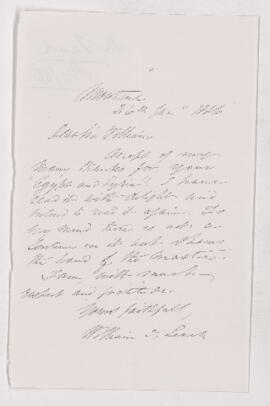 26th Jan
Dear Sir William
Accept of my
many thanks for your
Egypt and Syria. I have
read it with delight and
intend to read it again. To
my mind there is not a
sentence in it but shows
the hand of the master.
I am, with much
respect and gratitude
Yours faithfully,
William